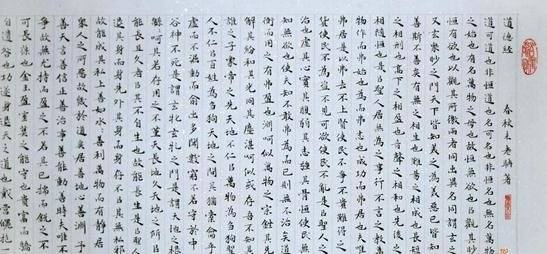 道德经
春秋末老聃著
道可道也非恒道也名可名也非恒名也無名萬物
之始也有名萬物之母也故恒無欲也以觀其眇
恒有欲也以觀其所徼兩者同出異名同謂玄之
又玄眾眇之門天下皆知美之為美惡已皆知
善斯不善矣有無之相生也難易之相成也長短
之相刑也高下之相盈也音聲之相和也先後之
相隨恒也是以聖人居無為之事行不言之教萬
物作而弗始也為而弗志也成功而弗居也夫唯
弗居是以弗去不上賢使民不爭不貴難得之
貨使民不為盜不見可欲使民不亂是以聖人之
治也虛其心實其腹弱其志強其骨恒使民無
知無欲也使夫知不敢弗為而已則無不治矣道
沖而用之有弗盈也淵呵似萬物之宗銼其兌
解其紛和其光同其塵湛呵似或存吾不知其誰
之子象帝之先天地不仁以萬物為芻狗聖
人不仁以百姓為芻狗天地之間其猶橐籥乎
虛而不淈動而俞出多聞數窮不若守於中
谷神不死是謂玄牝玄牝之門是謂天地之根
緜呵其若存用之不堇天長地久天地之所以
能長且久者以其不自生也故能長生是以聖人
退其身而身先外其身而身存不以其無私邪
故能成其私上善如水水善利萬物而有靜居
眾人之所惡故幾於道矣居善地心善淵予
善天言善信正善治事善能動善時夫唯不
爭故無尤持而盈之不若其已揣而銳之不
可長葆也金玉盈室莫之能守也貴富而驕
自遺咎也功遂身退天之道也戴營魄抱一